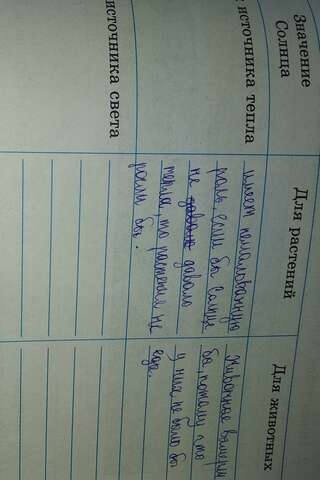 Значение
Солнца
Для растений
Для животных
источника тепла
имеет немаловажную
роль, если бы солнце
не давало
тепла, то растения не
росли бы.
Животные вымерли
бы, потому что
у них не было бы
еды.
источника света